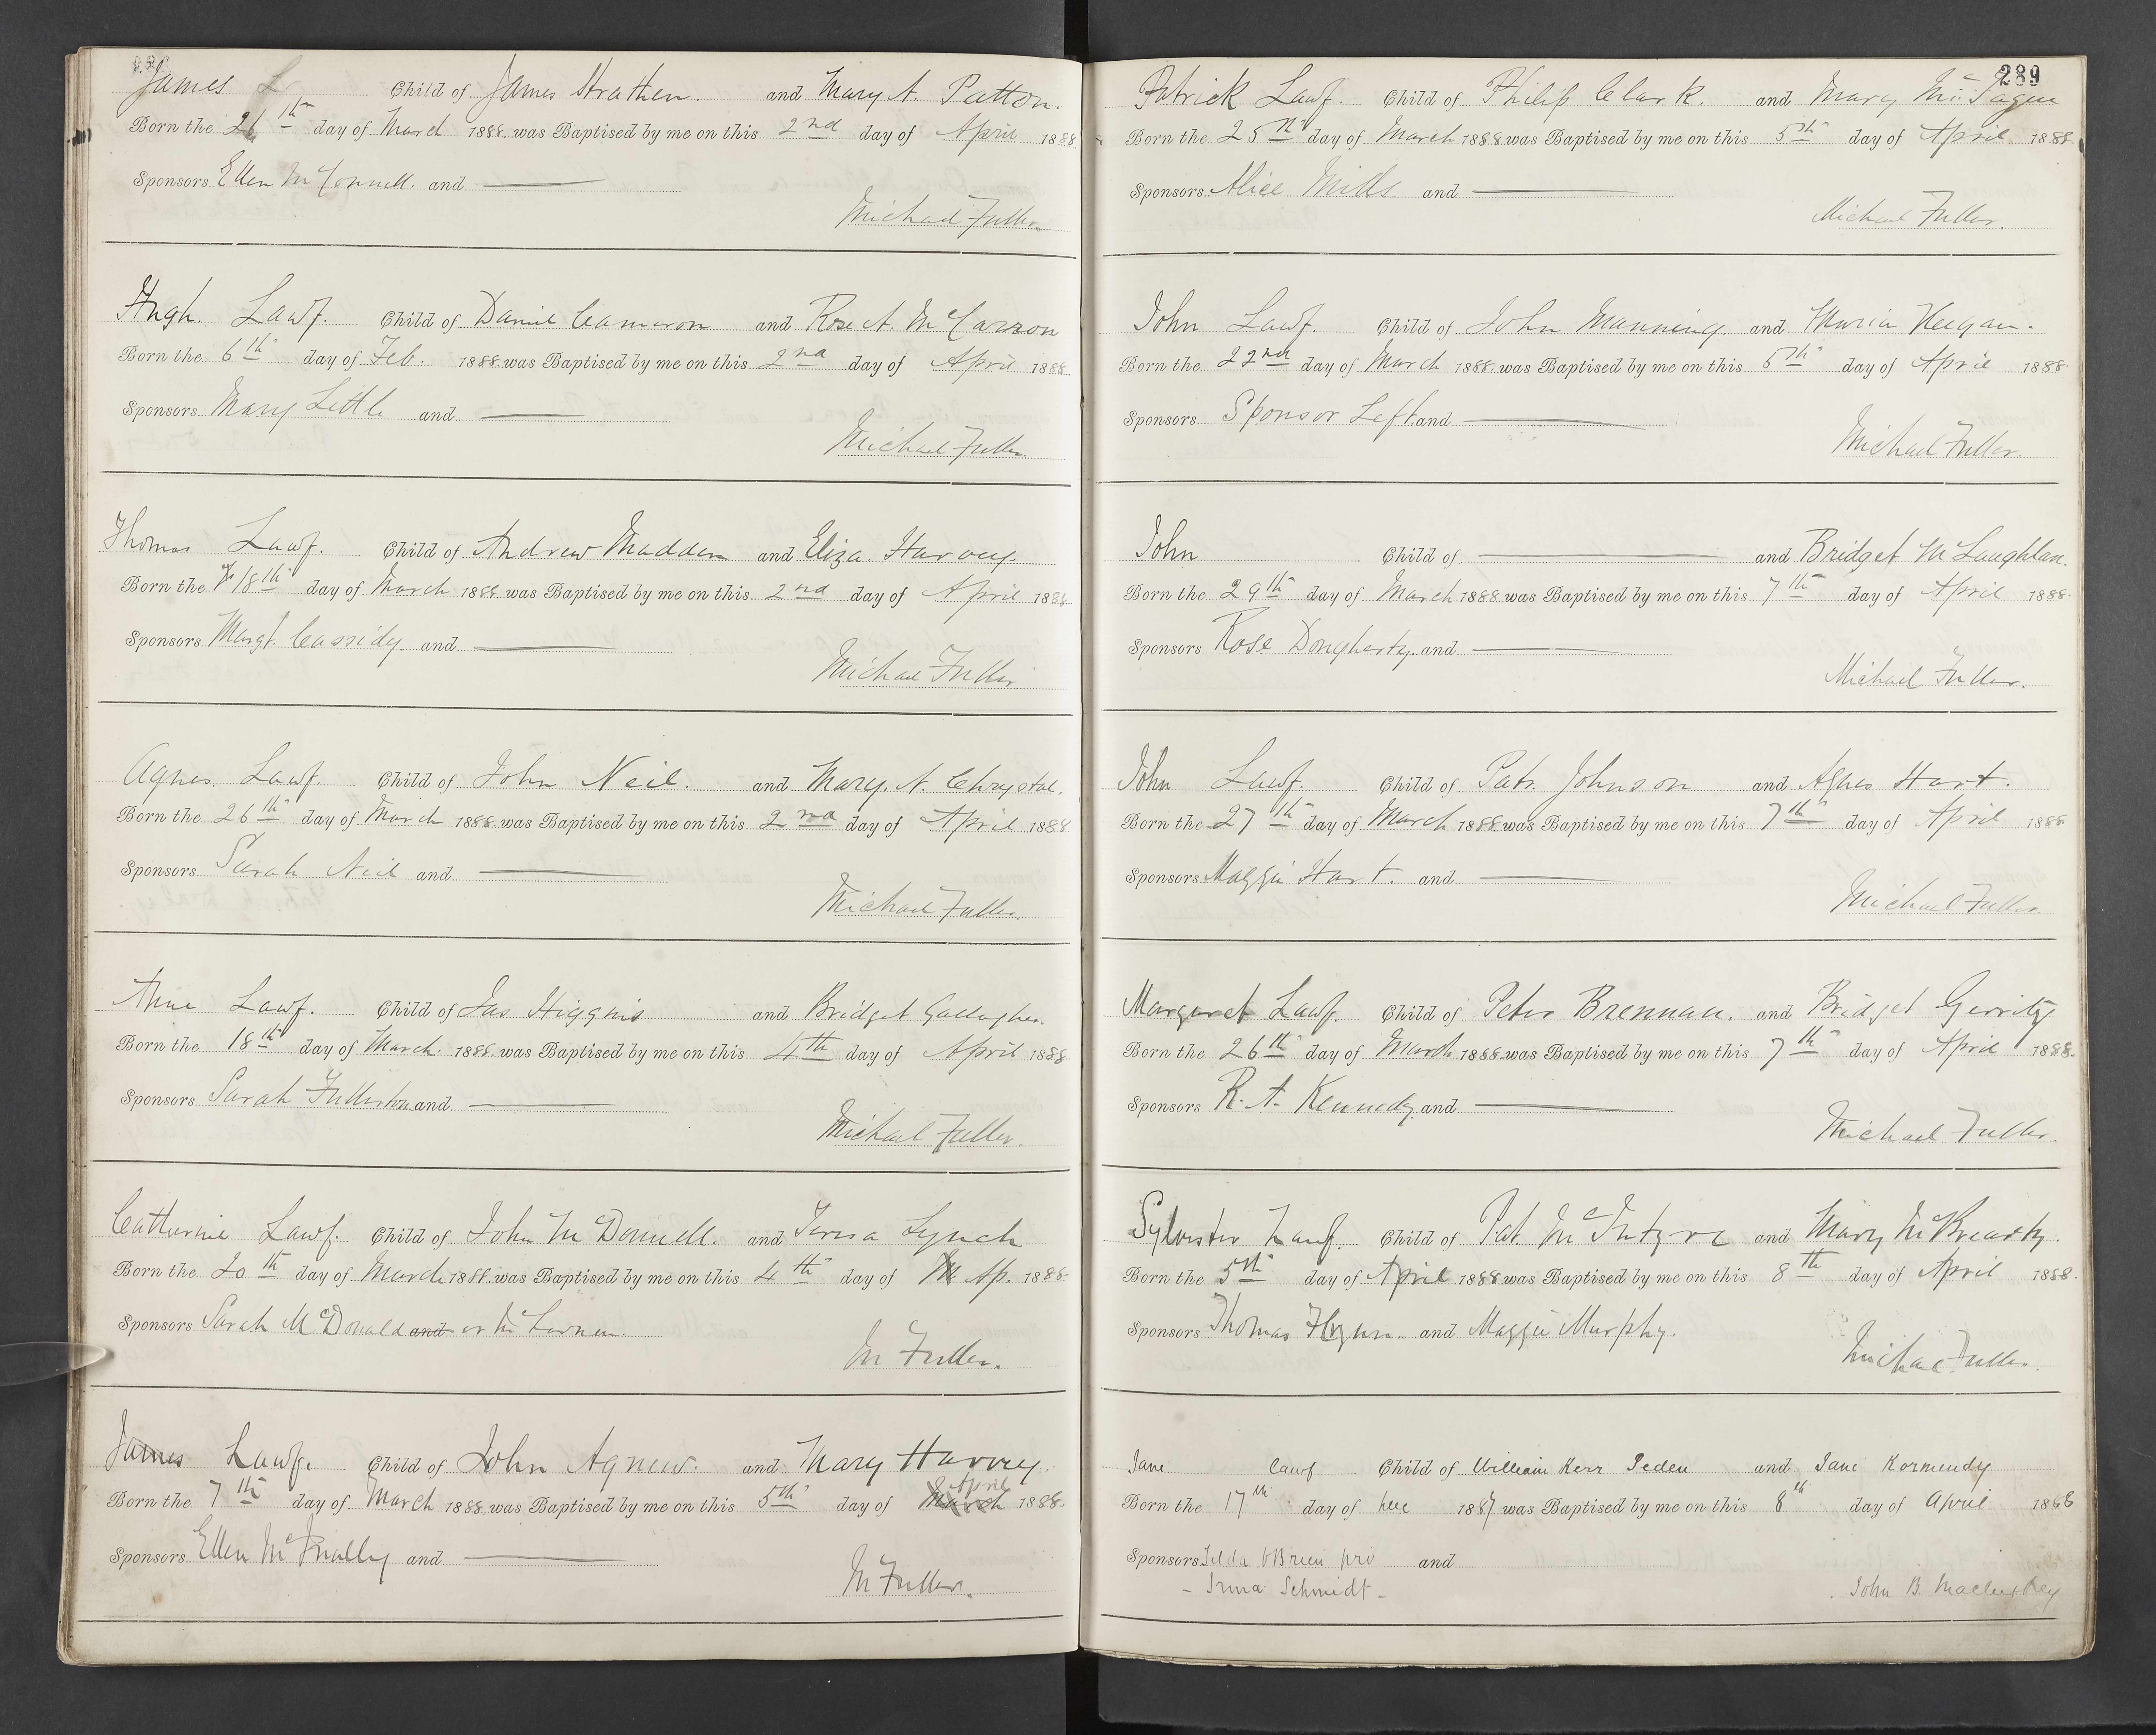 James L Child of James Strathen. and Mary A. Patton.
Born the 26th day of March 1888 was Baptised by me on this 2nd day of April 1888
Sponsors Ellen McConnell. and
Michael Fuller.
Hugh. Lawf. Child of Daniel Cameron and Rose A. McCarron
Born the 6th day of Feb. 1888 was Baptised by me on this 2nd day of April 1888
Sponsors Mary Little and
Michael Fuller
Thomas Lawf. Child of Andrew Madden and Eliza. Harvey.
Born the 18th day of March 1888 was Baptised by me on this 2nd day of April 1888
Sponsors Margt. Cassidy. and
Michael Fuller
Agnes Lawf. Child of John Neil. and Mary. A. Chrystal.
Born the 26th day of March 1888 was Baptised by me on this 2nd day of April 1888
Sponsors Sarah Neil and
Michael Fuller.
Anne Lawf. Child of Jas Higgins and Bridget Gallagher.
Born the 18th day of March. 1888 was Baptised by me on this 4th day of April 1888
Sponsors Sarah Fullerton and
Michael Fuller.
Catherine Lawf. Child of John McDonnell. and Teresa Lynch
Born the 20th day of March 1888 was Baptised by me on this 4th day of Ap. 1888
Sponsors Sarah McDonald and or
M Fuller.
James Lawf. Child of John Agnew. and Mary Harvey.
Born the 7th day of March 1888 was Baptised by me on this 5th day of March April 1888
Sponsors Ellen McAnally and
M Fuller.
289
Patrick Lawf. Child of Philip Clark. and Mary McTague
Born the 25th day of March 1888 was Baptised by me on this 5th day of April 1888
Sponsors Alice Mills and
Michael Fuller.
John Lawf. Child of John Manning. and Maria Keegan.
Born the 22nd day of March 1888 was Baptised by me on this 5th day of April 1888
Sponsors Sponsor Left. and
Michael Fuller.
John Child of and Bridget McLaughlan.
Born the 29th day of March 1888 was Baptised by me on this 7th day of April 1888
Sponsors Rose Dougherty. and
Michael Fuller.
John Lawf. Child of Patr. Johnson and Agnes Hart.
Born the 27th day of March 1888 was Baptised by me on this 7th day of April 1888
Sponsors Maggie Hart. and
Michael Fuller
Margaret Lawf. Child of Peter Brennan. and Bridget Gerrity
Born the 26th day of March 1888 was Baptised by me on this 7th day of April 1888
Sponsors R. A. Kennedy. and
Michael Fuller.
Sylvester Lawf. Child of Pat. McIntyre and Mary McBrearty.
Born the 5th day of April 1888 was Baptised by me on this 8th day of April 1888
Sponsors Thomas Flynn. and Maggie Murphy.
Michael Fuller.
Jane Lawf Child of William Kerr Peden and Jane Kormendy
Born the 17th day of 1887 was Baptised by me on this 8th day of April 1888
Sponsors Tilda OBrien pro and
- Irma Schmidt -
John B. Macluskey